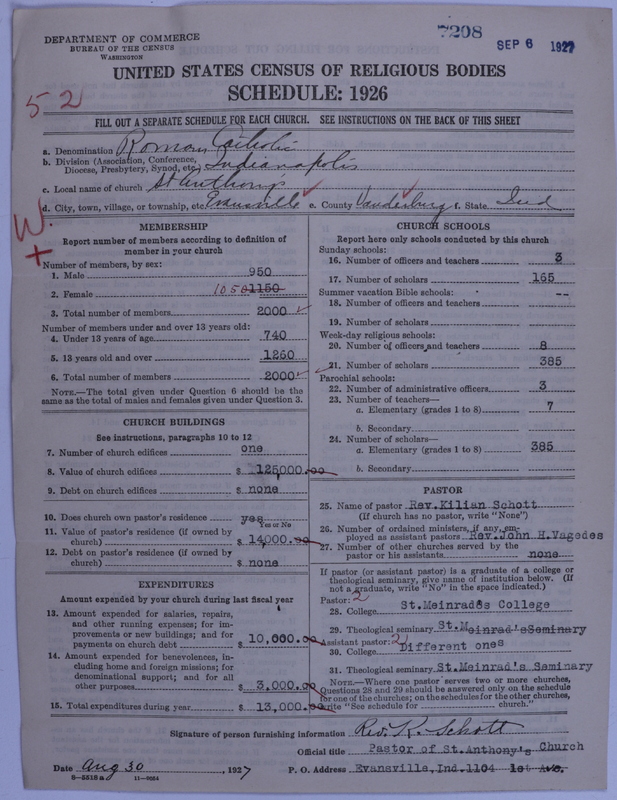 7208
SEP 6 1927
DEPARTMENT OF COMMERCE
BUREAU OF THE CENSUS
WASHINGTON
UNITED STATES CENSUS OF RELIGIOUS BODIES
SCHEDULE: 1926
52
FILL OUT A SEPARATE SCHEDULE FOR EACH CHURCH. SEE INSTRUCTIONS ON THE BACK OF THIS SHEET
a. Denomination Roman Catholic
b. Division (Association, Conference, Diocese, Presbytery, Synod, etc.) Indianapolis
c. Local name of church St Anthony's
d. City, town, village, or township, etc. Evansville e. County Vanderburg f. State Ind
W.
+
MEMBERSHIP
Report number of members according to definition of
member in your church
Number of members, by sex:
1. Male 950
2. Female 1050 1150
3. Total number of members 2000
Number of members under and over 13 years old:
4. Under 13 years of age 740
5. 13 years old and over 1260
6. Total number of members 2000
NOTE.—The total given under Question 6 should be the
same as the total of males and females given under Question 3.
CHURCH BUILDINGS
See instructions, paragraphs 10 to 12
7. Number of church edifices one
8. Value of church edifices $ 125,000.00
9. Debt on church edifices $ none
10. Does church own pastor's residence yes
Yes or No
11. Value of pastor's residence (if owned by
church) $ 14,000.00
12. Debt on pastor's residence (if owned by
church) $ none
EXPENDITURES
Amount expended by your church during last fiscal year
13. Amount expended for salaries, repairs,
and other running expenses; for im-
provements or new buildings; and for
payments on church debt $ 10,000.00
14. Amount expended for benevolences, in-
cluding home and foreign missions; for
denominational support; and for all
other purposes $ 3,000.00
15. Total expenditures during year $ 13,000.00
CHURCH SCHOOLS
Report here only schools conducted by this church
Sunday schools:
16. Number of officers and teachers 3
17. Number of scholars 165
Summer vacation Bible schools:
18. Number of officers and teachers --
19. Number of scholars
Week-day religious schools:
20. Number of officers and teachers 8
21. Number of scholars 385
Parochial schools:
22. Number of administrative officers 3
23. Number of teachers—
a. Elementary (grades 1 to 8) 7
b. Secondary
24. Number of scholars—
a. Elementary (grades 1 to 8) 385
b. Secondary
PASTOR
25. Name of pastor Rev.Kilian Schott
(If church has no pastor, write "None")
26. Number of ordained ministers, if any, em-
ployed as assistant pastors Rev.John H.Vagedes
27. Number of other churches served by the
pastor or his assistants none
If pastor (or assistant pastor) is a graduate of a college or
theological seminary, give name of institution below. (If
not a graduate, write "No" in the space indicated.)
Pastor: 2
28. College St.Meinrad's College
29. Theological seminary St.Meinrad'sSeminary
Assistant pastor: 2
30. College Different ones
31. Theological seminary St.Meinrad's Seminary
NOTE.—Where one pastor serves two or more churches,
Questions 28 and 29 should be answered only on the schedule
for one of the churches; on the schedules for the other churches,
write "See schedule for church."
Signature of person furnishing information Rev. K. Schott
Official title Pastor of St.Anthony's Church
Date Aug 30, 1927 P. O. Address Evansville,Ind.1104 1st Ave.
8—5518a 11—9054